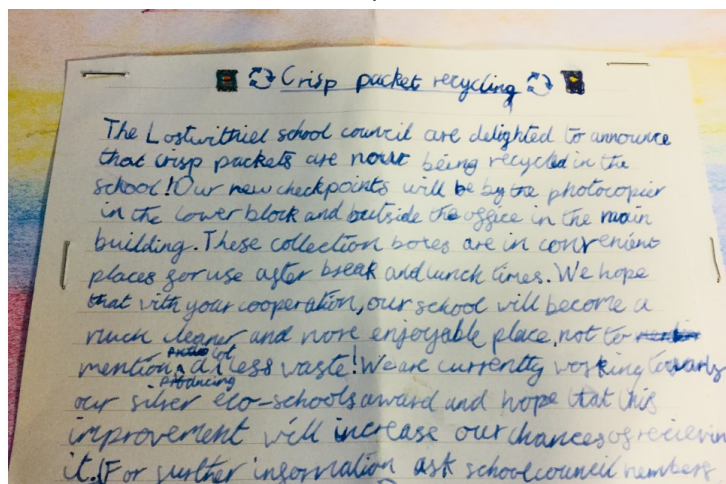 Crisp packet recycling
The Lostwithiel school council are delighted to announce
that crisp packets are now being recycled in the
school! Our new checkpoints will be by the photocopier
in the lower block and outside the office in the main
building. These collection boxes are in convenient
places for use after break and lunch times. We hope
that with your cooperation, our school will become a
much cleaner and more enjoyable place, not to
mention producing a lot less waste! We are currently working towards
our silver eco-schools award and hope that this
improvement will increase our chances of recieving
it. (For further information ask school council members